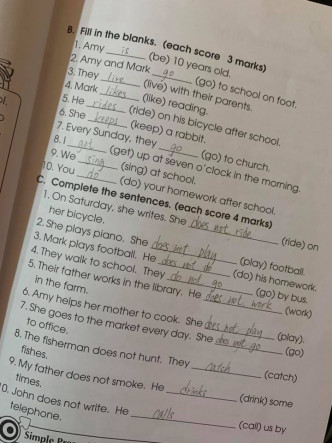 B. Fill in the blanks. (each score 3 marks)
1. Amy is (be) 10 years old.
2. Amy and Mark go (go) to school on foot.
3. They live (live) with their parents.
4. Mark likes (like) reading.
5. He rides (ride) on his bicycle after school.
6. She keeps (keep) a rabbit.
7. Every Sunday, they go (go) to church.
8. I get (get) up at seven o'clock in the morning.
9. We sing (sing) at school.
10. You do (do) your homework after school.
C. Complete the sentences. (each score 4 marks)
1. On Saturday, she writes. She does not ride (ride) on
her bicycle.
2. She plays piano. She does not play (play) football.
3. Mark plays football. He does not do (do) his homework.
4. They walk to school. They do not go (go) by bus.
5. Their father works in the library. He does not work (work)
in the farm.
6. Amy helps her mother to cook. She does not play (play).
7. She goes to the market every day. She does not go (go)
to office.
8. The fisherman does not hunt. They catch (catch)
fishes.
9. My father does not smoke. He drinks (drink) some
times.
10. John does not write. He calls (call) us by
telephone.
Simple